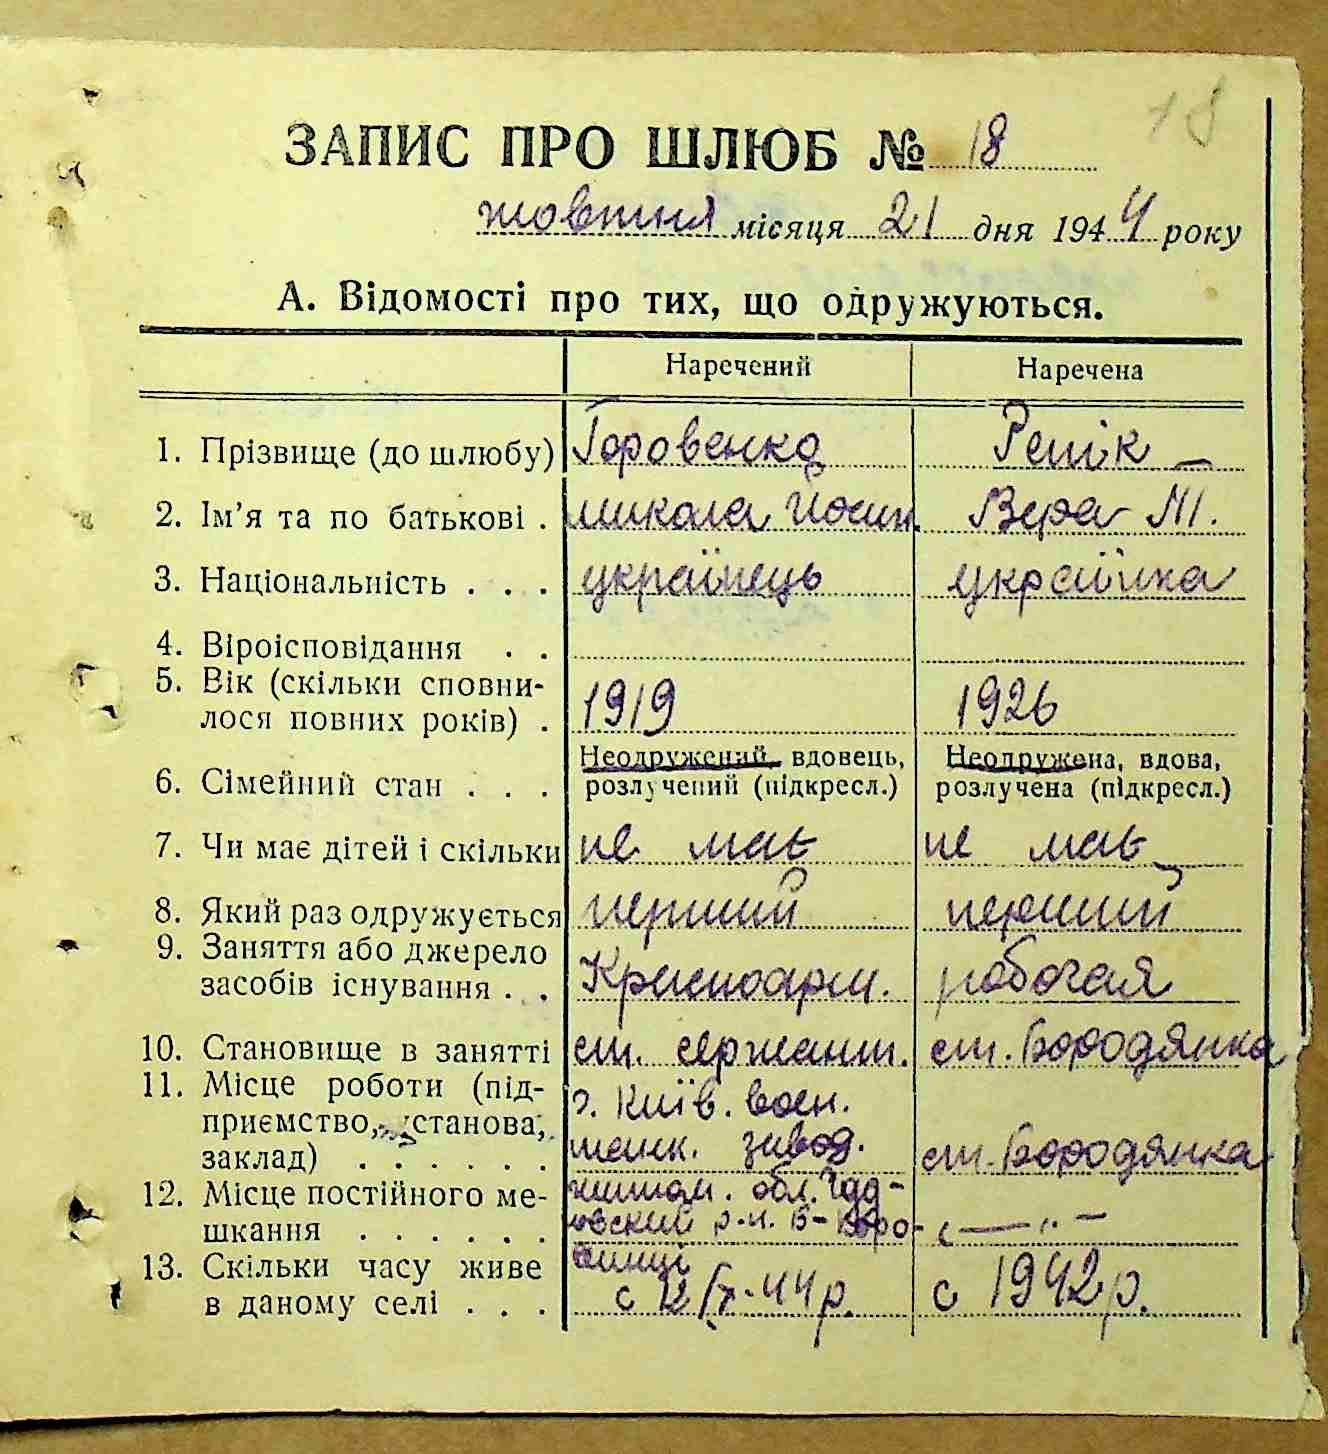 18
ЗАПИС ПРО ШЛЮБ № 18
жовтня місяця 21 дня 1944 року
А. Відомості про тих, що одружуються.
Наречений Наречена
1. Прізвище (до шлюбу) Горовенко Репік
2. Ім'я та по батькові . Микола Йосип. Вера М.
3. Національність . . . українець українка
4. Віроісповідання . .
5. Вік (скільки сповни-
лося повних років) . 1919 1926
6. Сімейний стан . . . Неодружений, вдовець, розлучений (підкресл.) Неодружена, вдова, розлучена (підкресл.)
7. Чи має дітей і скільки не має не має
8. Який раз одружується перший перший
9. Заняття або джерело
засобів існування . . Красноарм. робочая
10. Становище в занятті ст. сержант. ст. Бородянка
11. Місце роботи (під- г. Київ. воен.
приємство, установа, танк. завод.
заклад) . . . . . . ст. Бородянка
12. Місце постійного ме- житом. обл.
шкання . . . . . . р-н. В-Коро- — " —
винці
13. Скільки часу живе
в даному селі . . . с 12/X-44 р. с 1942 р.